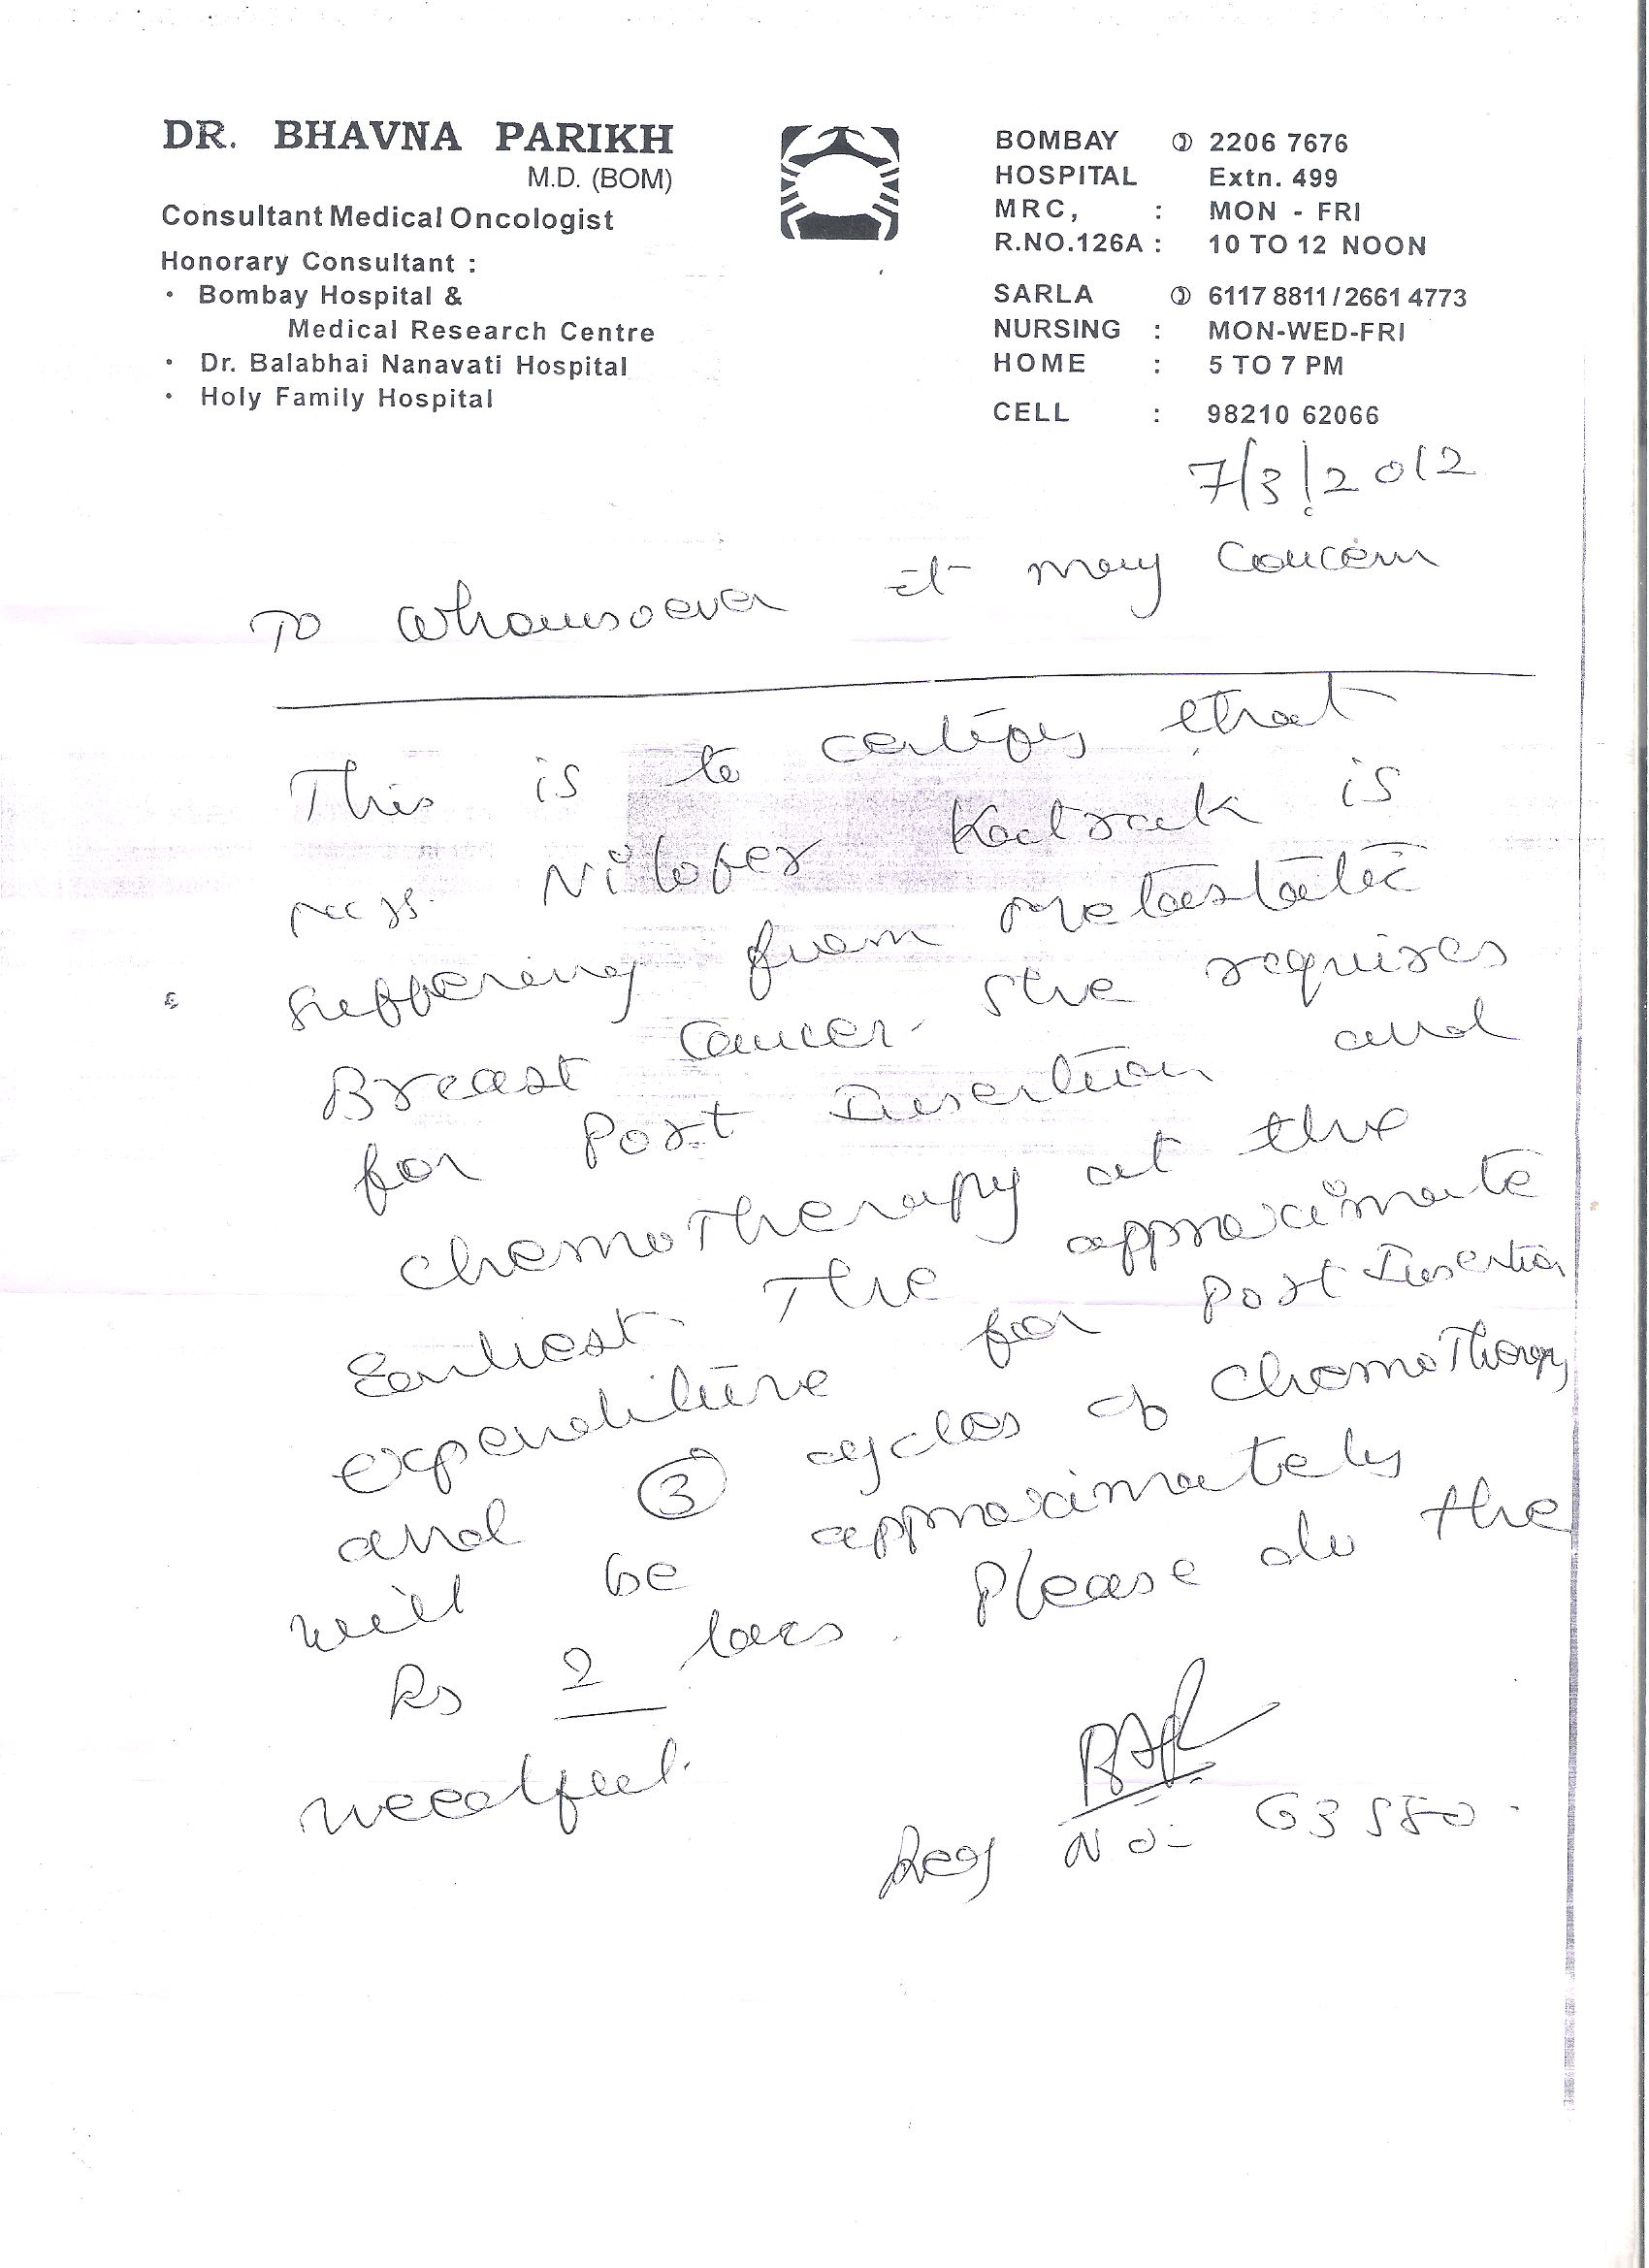 DR. BHAVNA PARIKH
M.D. (BOM)
Consultant Medical Oncologist
Honorary Consultant :
• Bombay Hospital &
Medical Research Centre
• Dr. Balabhai Nanavati Hospital
• Holy Family Hospital
BOMBAY 2206 7676
HOSPITAL Extn. 499
MRC, : MON - FRI
R.NO.126A : 10 TO 12 NOON
SARLA 6117 8811/2661 4773
NURSING : MON-WED-FRI
HOME : 5 TO 7 PM
CELL : 98210 62066
7/3/2012
To whomsoever it may concern
This is to certify that
Mrs. Nilofer Katrak is
suffering from metastatic
Breast cancer. She requires
for Port Insertion and
chemotherapy at the
Earliest. The approximate
expenditure for Port Insertion
and 3 cycles of chemotherapy
will be approximately
Rs 2 lacs. Please do the
needful.
Reg No:-